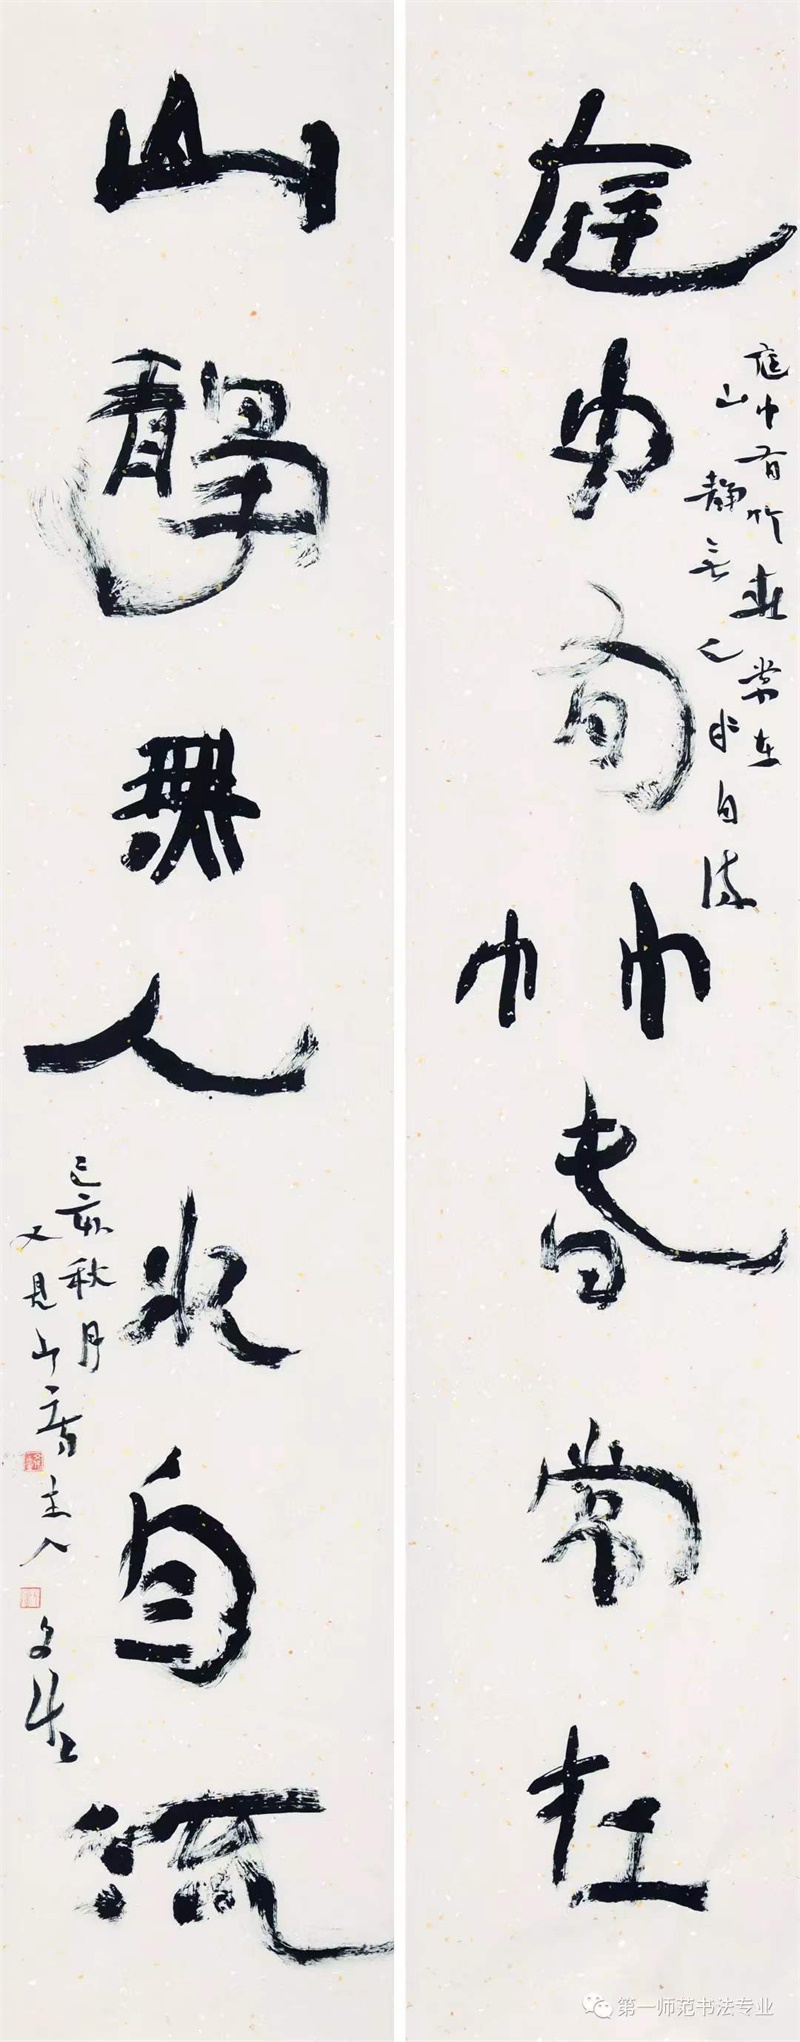 庭中有竹春常在
庭中有竹春常在
山静无人水自流
山靜無人水自流
己亥秋月
又見山齋主人
第一师范书法专业